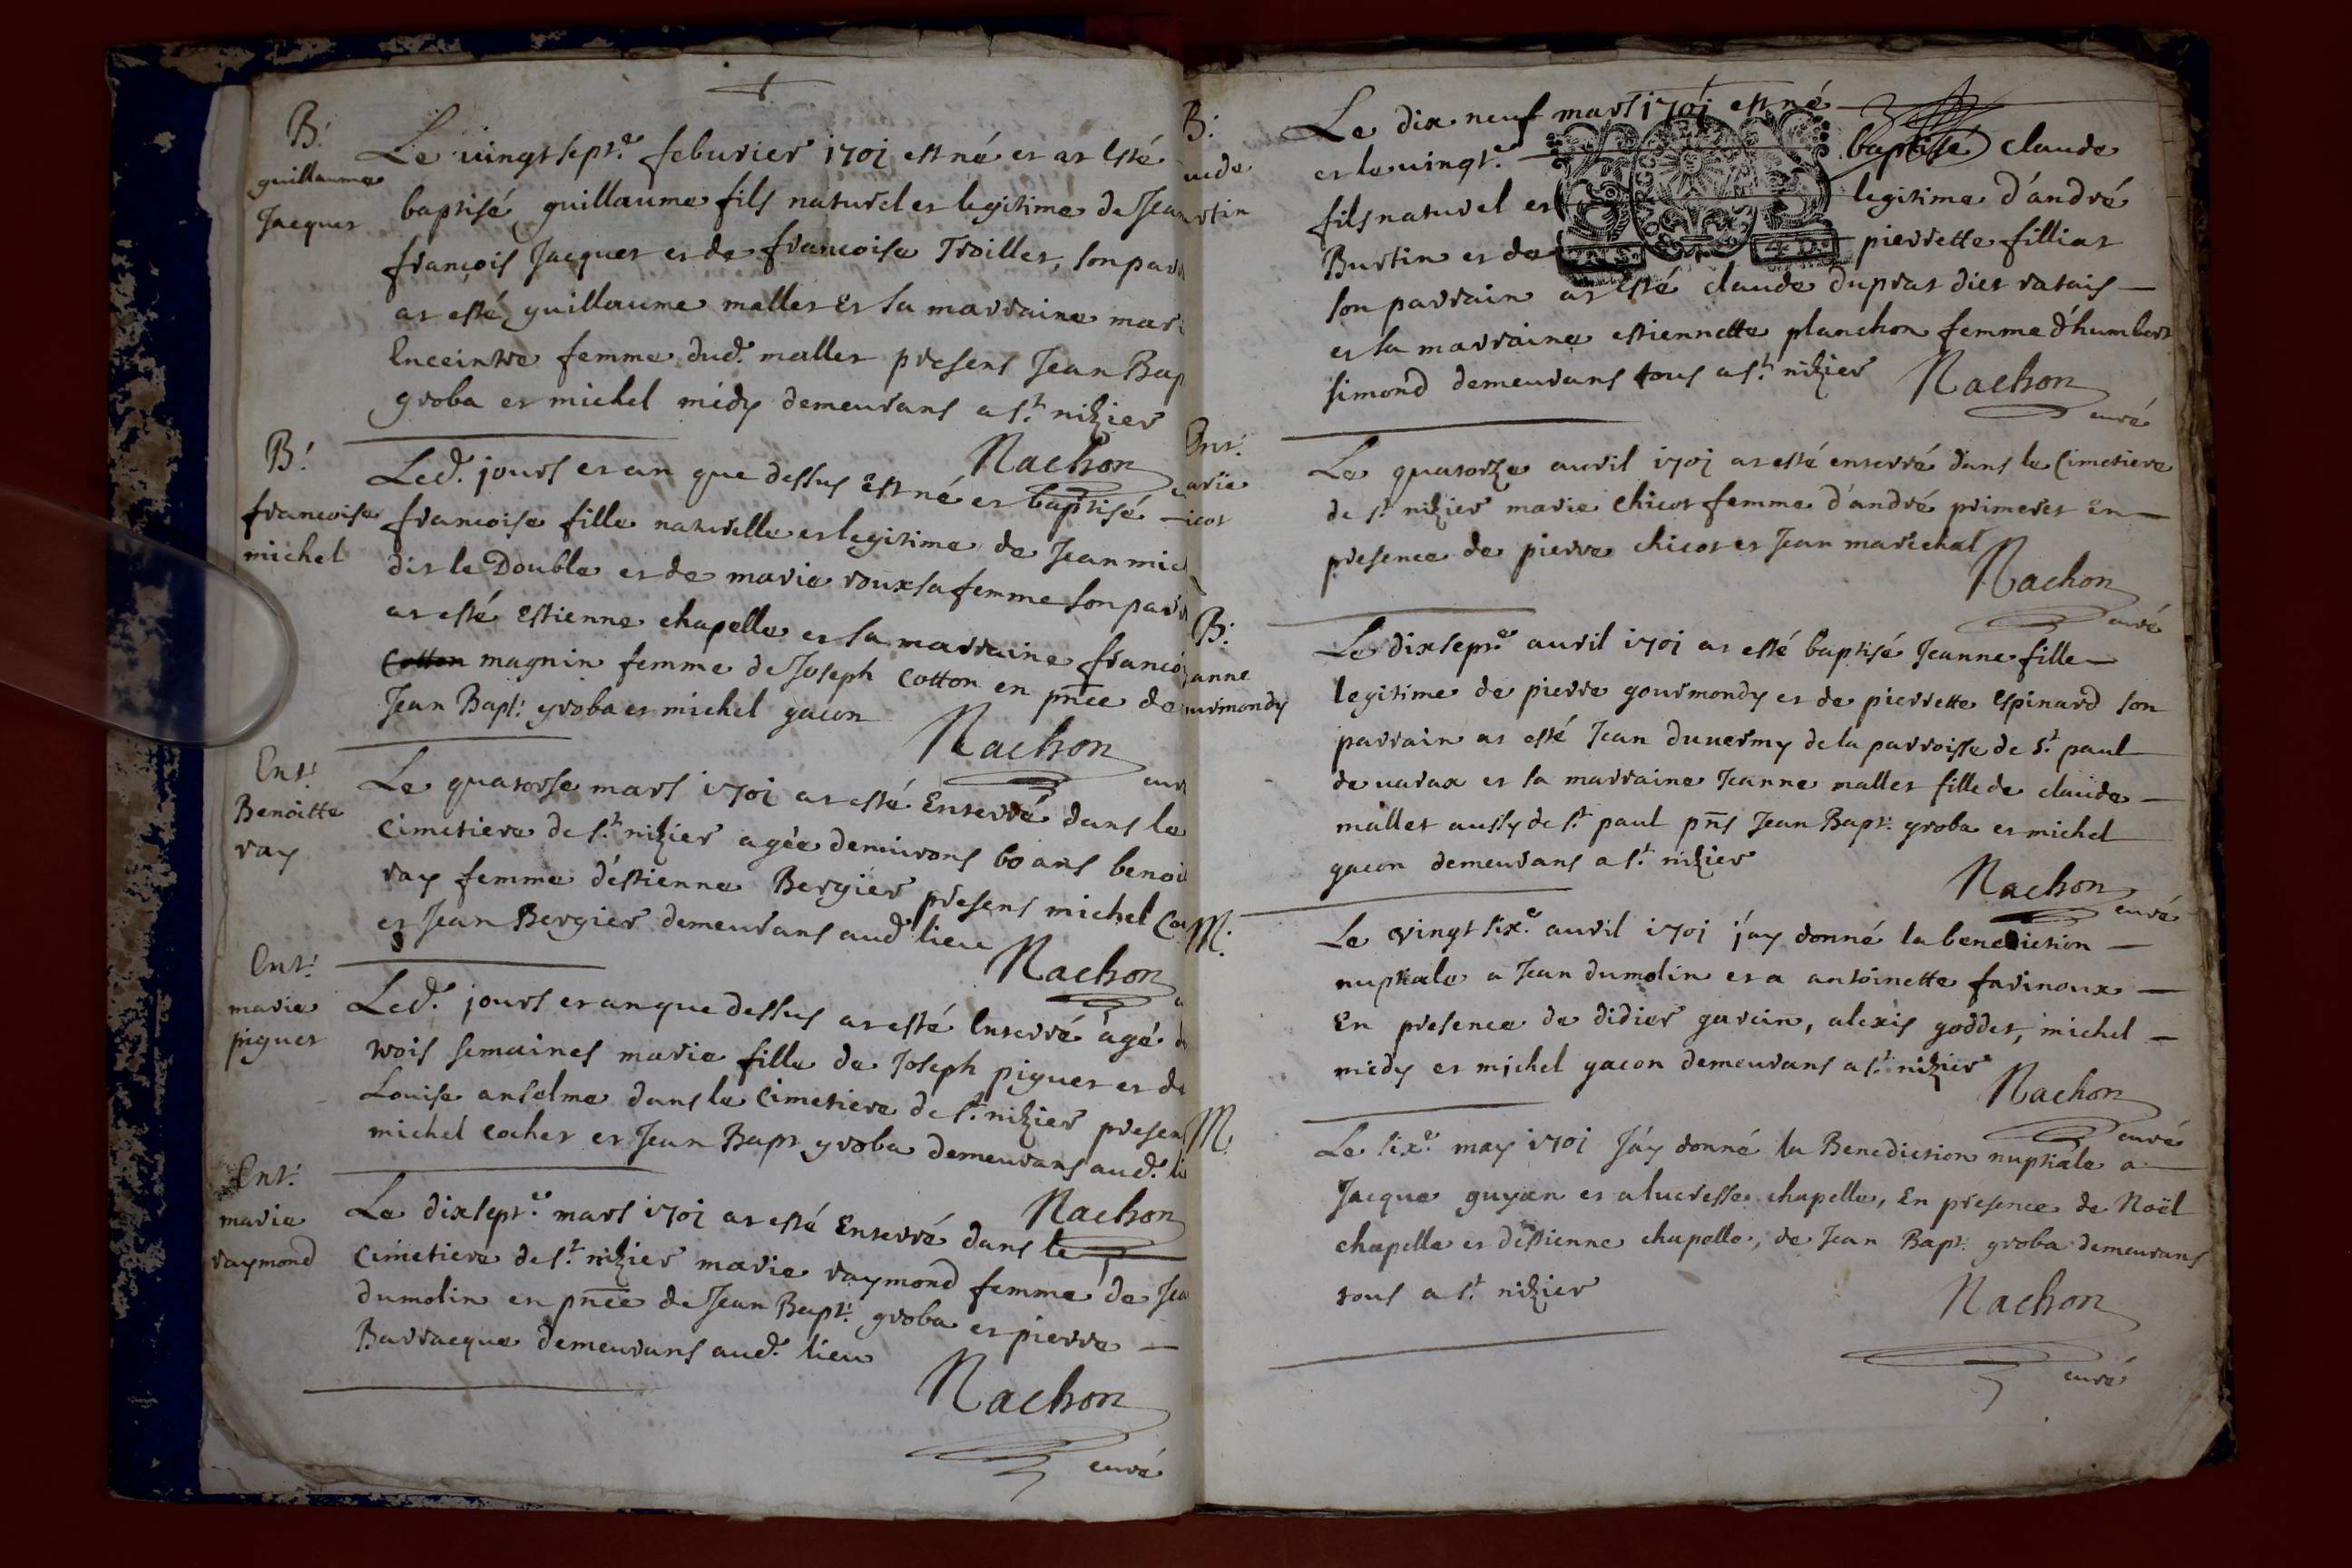 B.
guillaume
Jacquet
Le vingt sept.e feburier 1701 est né et at Esté
baptisé guillaume fils naturel et legitime de Jea
françois Jacquet et de francoise Troillet, son parr
at esté guillaume mallet Et sa marraine mari
Enceintre femme dud. mallet presens Jean Bap
groba et michel midy demeurans a st. nizier
Nachon
B.
francoise
michel
Led. jours et an que dessus Est né et baptisé —
francoise fille naturelle et legitime de Jean mic
dit le Double et de marie roux sa femme son parr
at esté Estienne chapelle et sa marraine franco
Cotton magnin femme de Joseph Cotton en pnce de
Jean Bapt: groba et michel gacon
Nachon
cur
Ent:
Benoitte
ray
Le quatorse mars 1701 at esté Enterré dans le
cimetiere de st. nizier agée denuirons 60 ans benoi
ray femme d'éstienne Bergier presens michel Co
et Jean Bergier demeurans aud. lieu
Nachon
Ent:
marie
piguet
Led. jours et an que dessus at esté Enterré agé d
trois semaines marie fille de Joseph piguet et de
Louise anselme dans le Cimetiere de st. nizier presen
michel cochet et Jean Bapt groba demeurans aud. li
Nachon
Ent:
marie
raymond
Le dix sept.e mars 1701 at esté Enterré dans le
Cimetiere de st. nizier marie raymond femme de Jea
dumolin en pnce de Jean Bapt: groba et pierre —
Barracque demeurans aud. lieu
Nachon
curé
B:
ude
rtin
Le dix neuf mars 1701 est né
et le vingt.e baptisé claude
fils naturel et legitime d'andré
Burtin et de pierrette filliat
son parrain at esté claude duprat diet ratais —
et sa marraine estiennette planchon femme d'humbert
simond demeurans tous a st. nizier
Nachon
curé
Ent:
arie
icot
Le quatorze auril 1701 at esté enterré dans le Cimetiere
de st. nizier marie chicot femme d'andré primeret en —
presence de pierre chicot et Jean marechal
Nachon
curé
B:
anne
urmondy
Le dix sept.e auril 1701 at esté baptisé Jeanne fille —
legitime de pierre gourmondy et de pierrette Espinard son
parrain at esté Jean duuermy de la parroisse de st. paul
de uarax et sa marraine Jeanne mallet fille de claude —
mallet aussy de st. paul pns Jean Bapt: groba et michel
gacon demeurans a st. nizier
Nachon
curé
M.
Le vingt six.e auril 1701 j'ay donné la benediction —
nuptiale a Jean dumolin et a antoinette farinoux —
En presence de didier garcin, alexis goddet, michel —
midy et michel gacon demeurans a st. nizier
Nachon
curé
M.
Le six.e may 1701 J'áy donné la Benediction nuptiale a —
Jacque guyan et a lucresse chapelle, En presence de Noël
chapelle et d'éstienne chapelle, de Jean Bapt. groba demeurans
tous a st. nizier
Nachon
curé